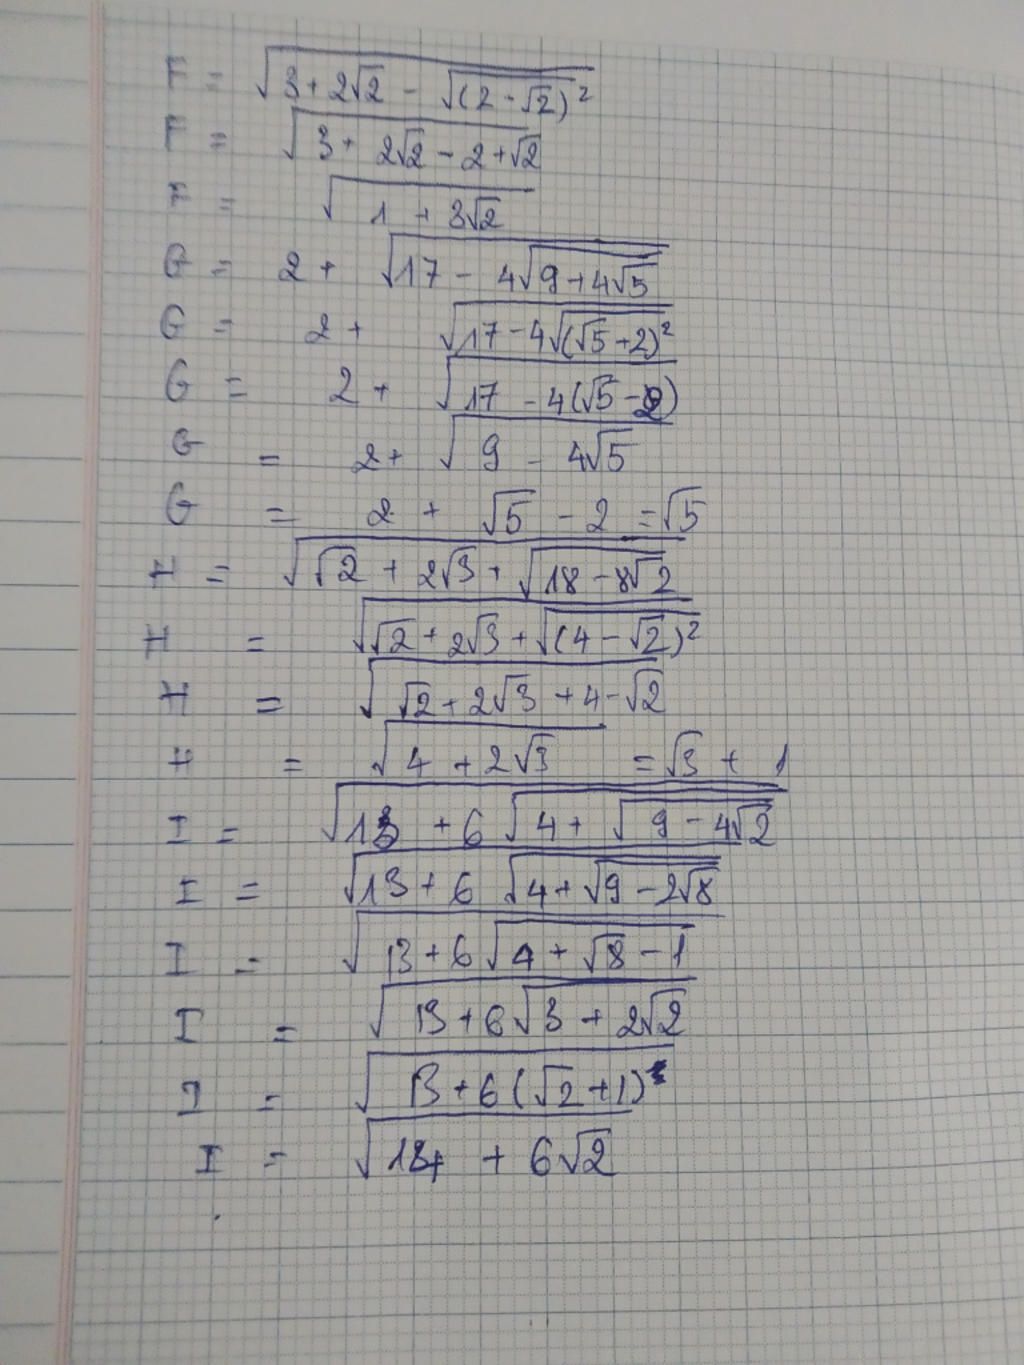 F = √(3 + 2√2 - √((2 - √2)²))
F = √(3 + 2√2 - 2 + √2)
F = √(1 + 3√2)
G = 2 + √(17 - 4√(9 + 4√5))
G = 2 + √(17 - 4√((√5 + 2)²))
G = 2 + √(17 - 4(√5 - 2))
G = 2 + √(9 - 4√5)
G = 2 + √5 - 2 = √5
H = √(√2 + 2√3 + √(18 - 8√2))
H = √(√2 + 2√3 + √((4 - √2)²))
H = √(√2 + 2√3 + 4 - √2)
H = √(4 + 2√3) = √3 + 1
I = √(13 + 6√(4 + √(9 - 4√2)))
I = √(13 + 6√(4 + √(9 - 2√8)))
I = √(13 + 6√(4 + √8 - 1))
I = √(13 + 6√(3 + 2√2))
I = √(13 + 6(√2 + 1))
I = + 6√2